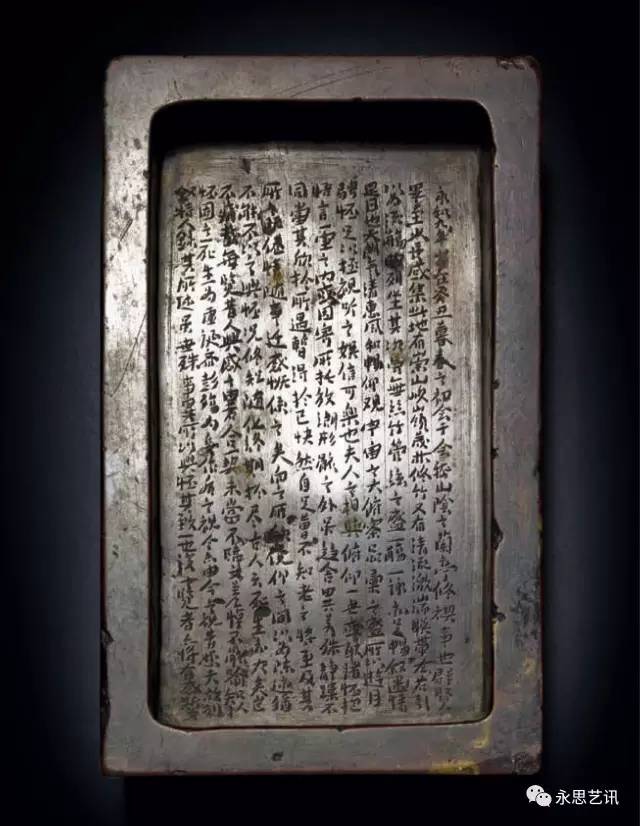 永和九年歲在癸丑暮春之初會于會稽山陰之蘭亭修禊事也群賢
畢至少長咸集此地有崇山峻領茂林修竹又有清流激湍映帶左右引
以為流觴曲水列坐其次雖無絲竹管弦之盛一觴一詠亦足暢敘幽情
是日也天朗氣清惠風和暢仰觀宇宙之大俯察品彙之盛所以遊目
騁懷足以極視聽之娛信可樂也夫人之相與俯仰一世或取諸懷抱
悟言一室之內或因寄所托放浪形骸之外雖趣舍萬殊靜躁不
同當其欣於所遇暫得於己快然自足曾不知老之將至及其
所之既倦情隨事遷感慨係之矣向之所欣俛仰之間以為陳迹猶
不能不以之興懷況修短隨化終期於盡古人云死生亦大矣豈
不痛哉每覽昔人興感之由若合一契未嘗不臨文嗟悼不能喻之於
懷固知一死生為虛誕齊彭殤為妄作後之視今亦由今之視昔悲夫故列
敘時人錄其所述雖世殊事異所以興懷其致一也後之覽者亦將有感於
永思艺讯